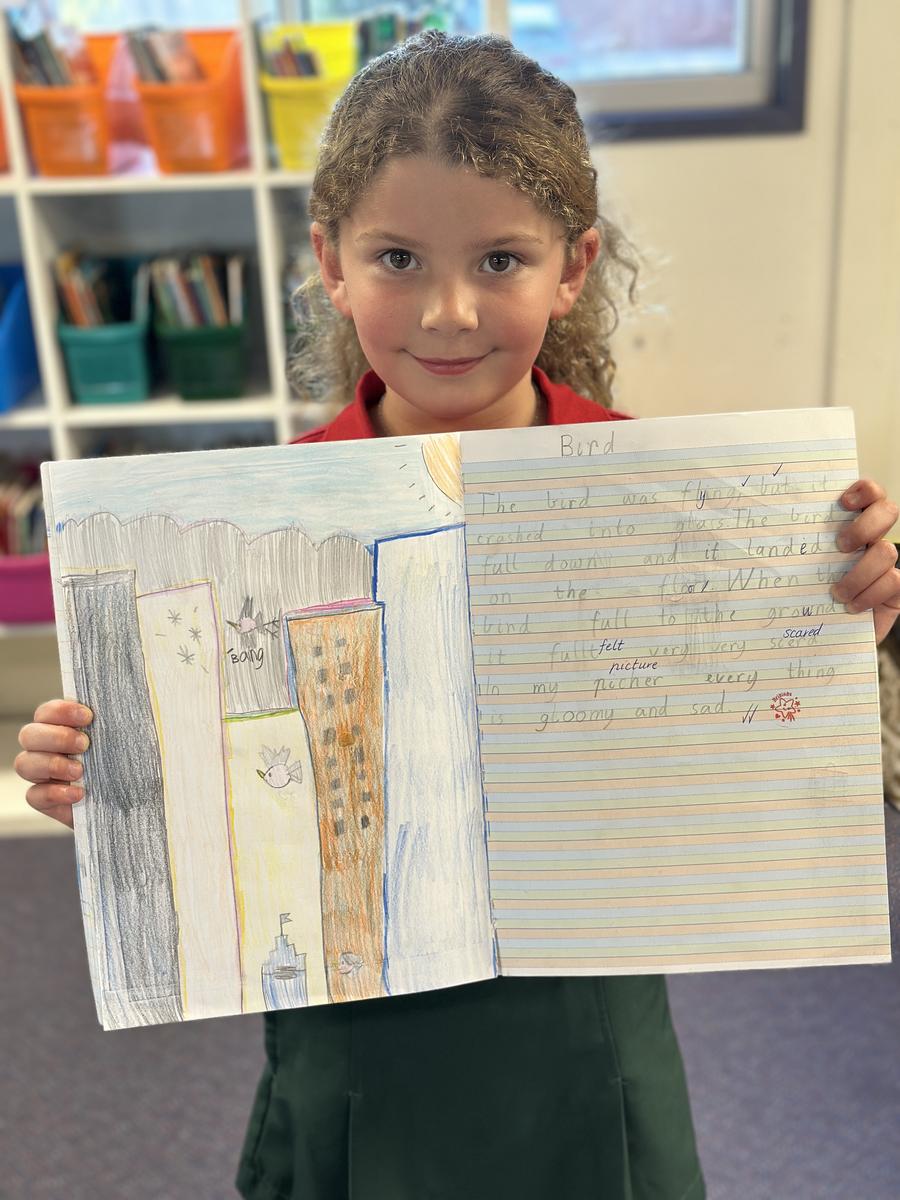 Bird
The bird was flying, but it
crashed into glass. The bird
full down and it landed
on the floor. When the
bird full to the ground
felt scared
it full very very scerd
picture
in my picher every thing
is gloomy and sad.
Bang